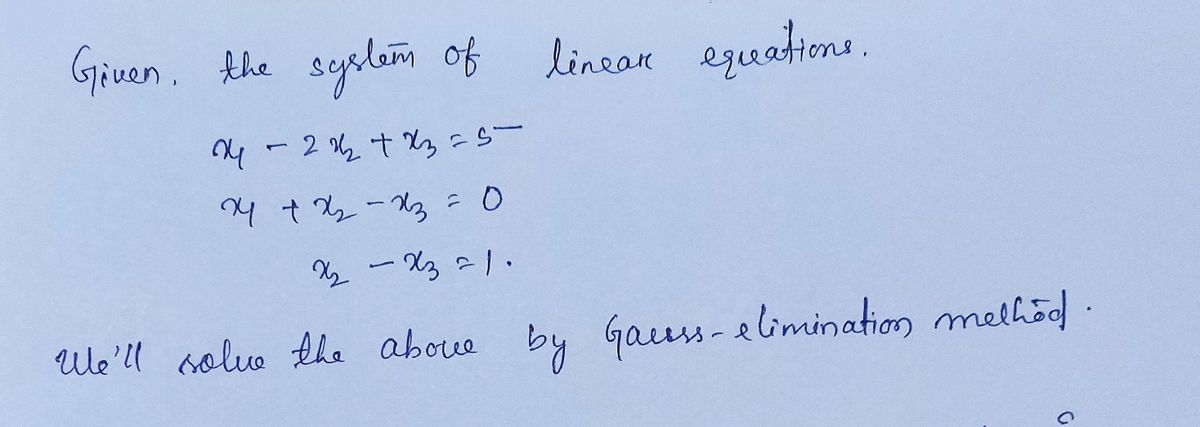 Given, the system of linear equations.
x₁ - 2x₂ + x₃ = 5
x₁ + x₂ - x₃ = 0
x₂ - x₃ = 1.
We'll solve the above by Gauss-elimination method.